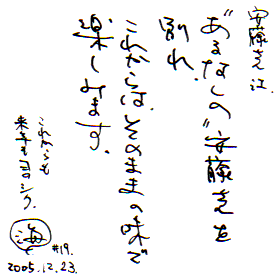 安藤克江
"あるなしの"安藤克を
別れ、
これからは、そのままの味で
楽しみます。
これからも
来年もヨロシク。
海
#19.
2005.12.23.